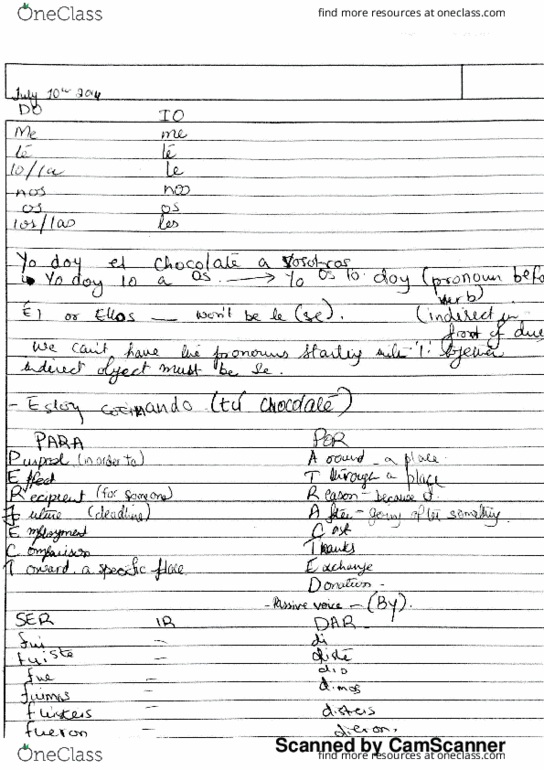 OneClass
find more resources at oneclass.com
July 10th
DO IO
Me me
te te
lo/la le
nos nos
os os
los/las les
Yo doy el chocolate a Vosotros
Yo doy lo a os. → Yo os lo doy (pronoun befo
verb)
Él or Ellos — won't be le (se). (indirect in
front of
We can't have two pronouns starting with 'l'
indirect object must be se.
- Estoy (tú chocolate)
PARA POR
Purpose (in order to) Around - a place
Effect Through a place
Recipient (for someone) Reason - because of
Future (deadline) After - going after something
Employment Cost
Comparison Thanks
Toward a specific place Exchange
Donation -
- Passive voice - (By).
SER IR DAR
fui — di
fuiste — diste
fue — dio
fuimos — dimos
fuisteis — disteis
fueron — dieron.
Scanned by CamScanner
OneClass
find more resources at oneclass.com